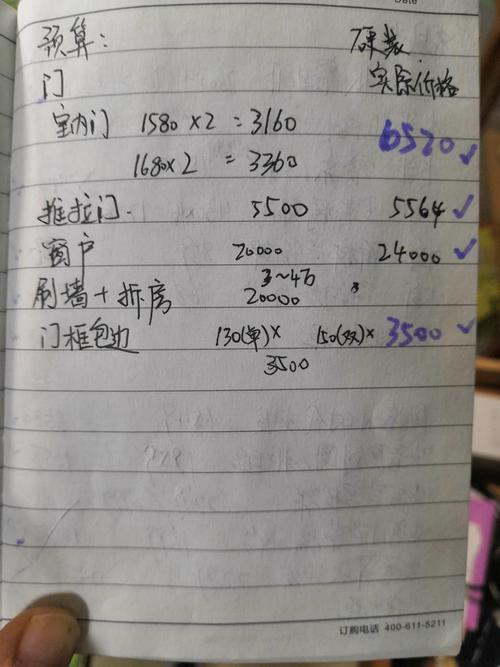 预算: 硬装
门 实际价格
室内门 1580×2 = 3160 6520 ✓
1680×2 = 3360
推拉门. 5500 5564 ✓
窗户 20000 24000 ✓
3~4万
刷墙+拆房 20000
门框包边 130(单)× 150(双)× 3500 ✓
3500
订购电话 400-611-5211